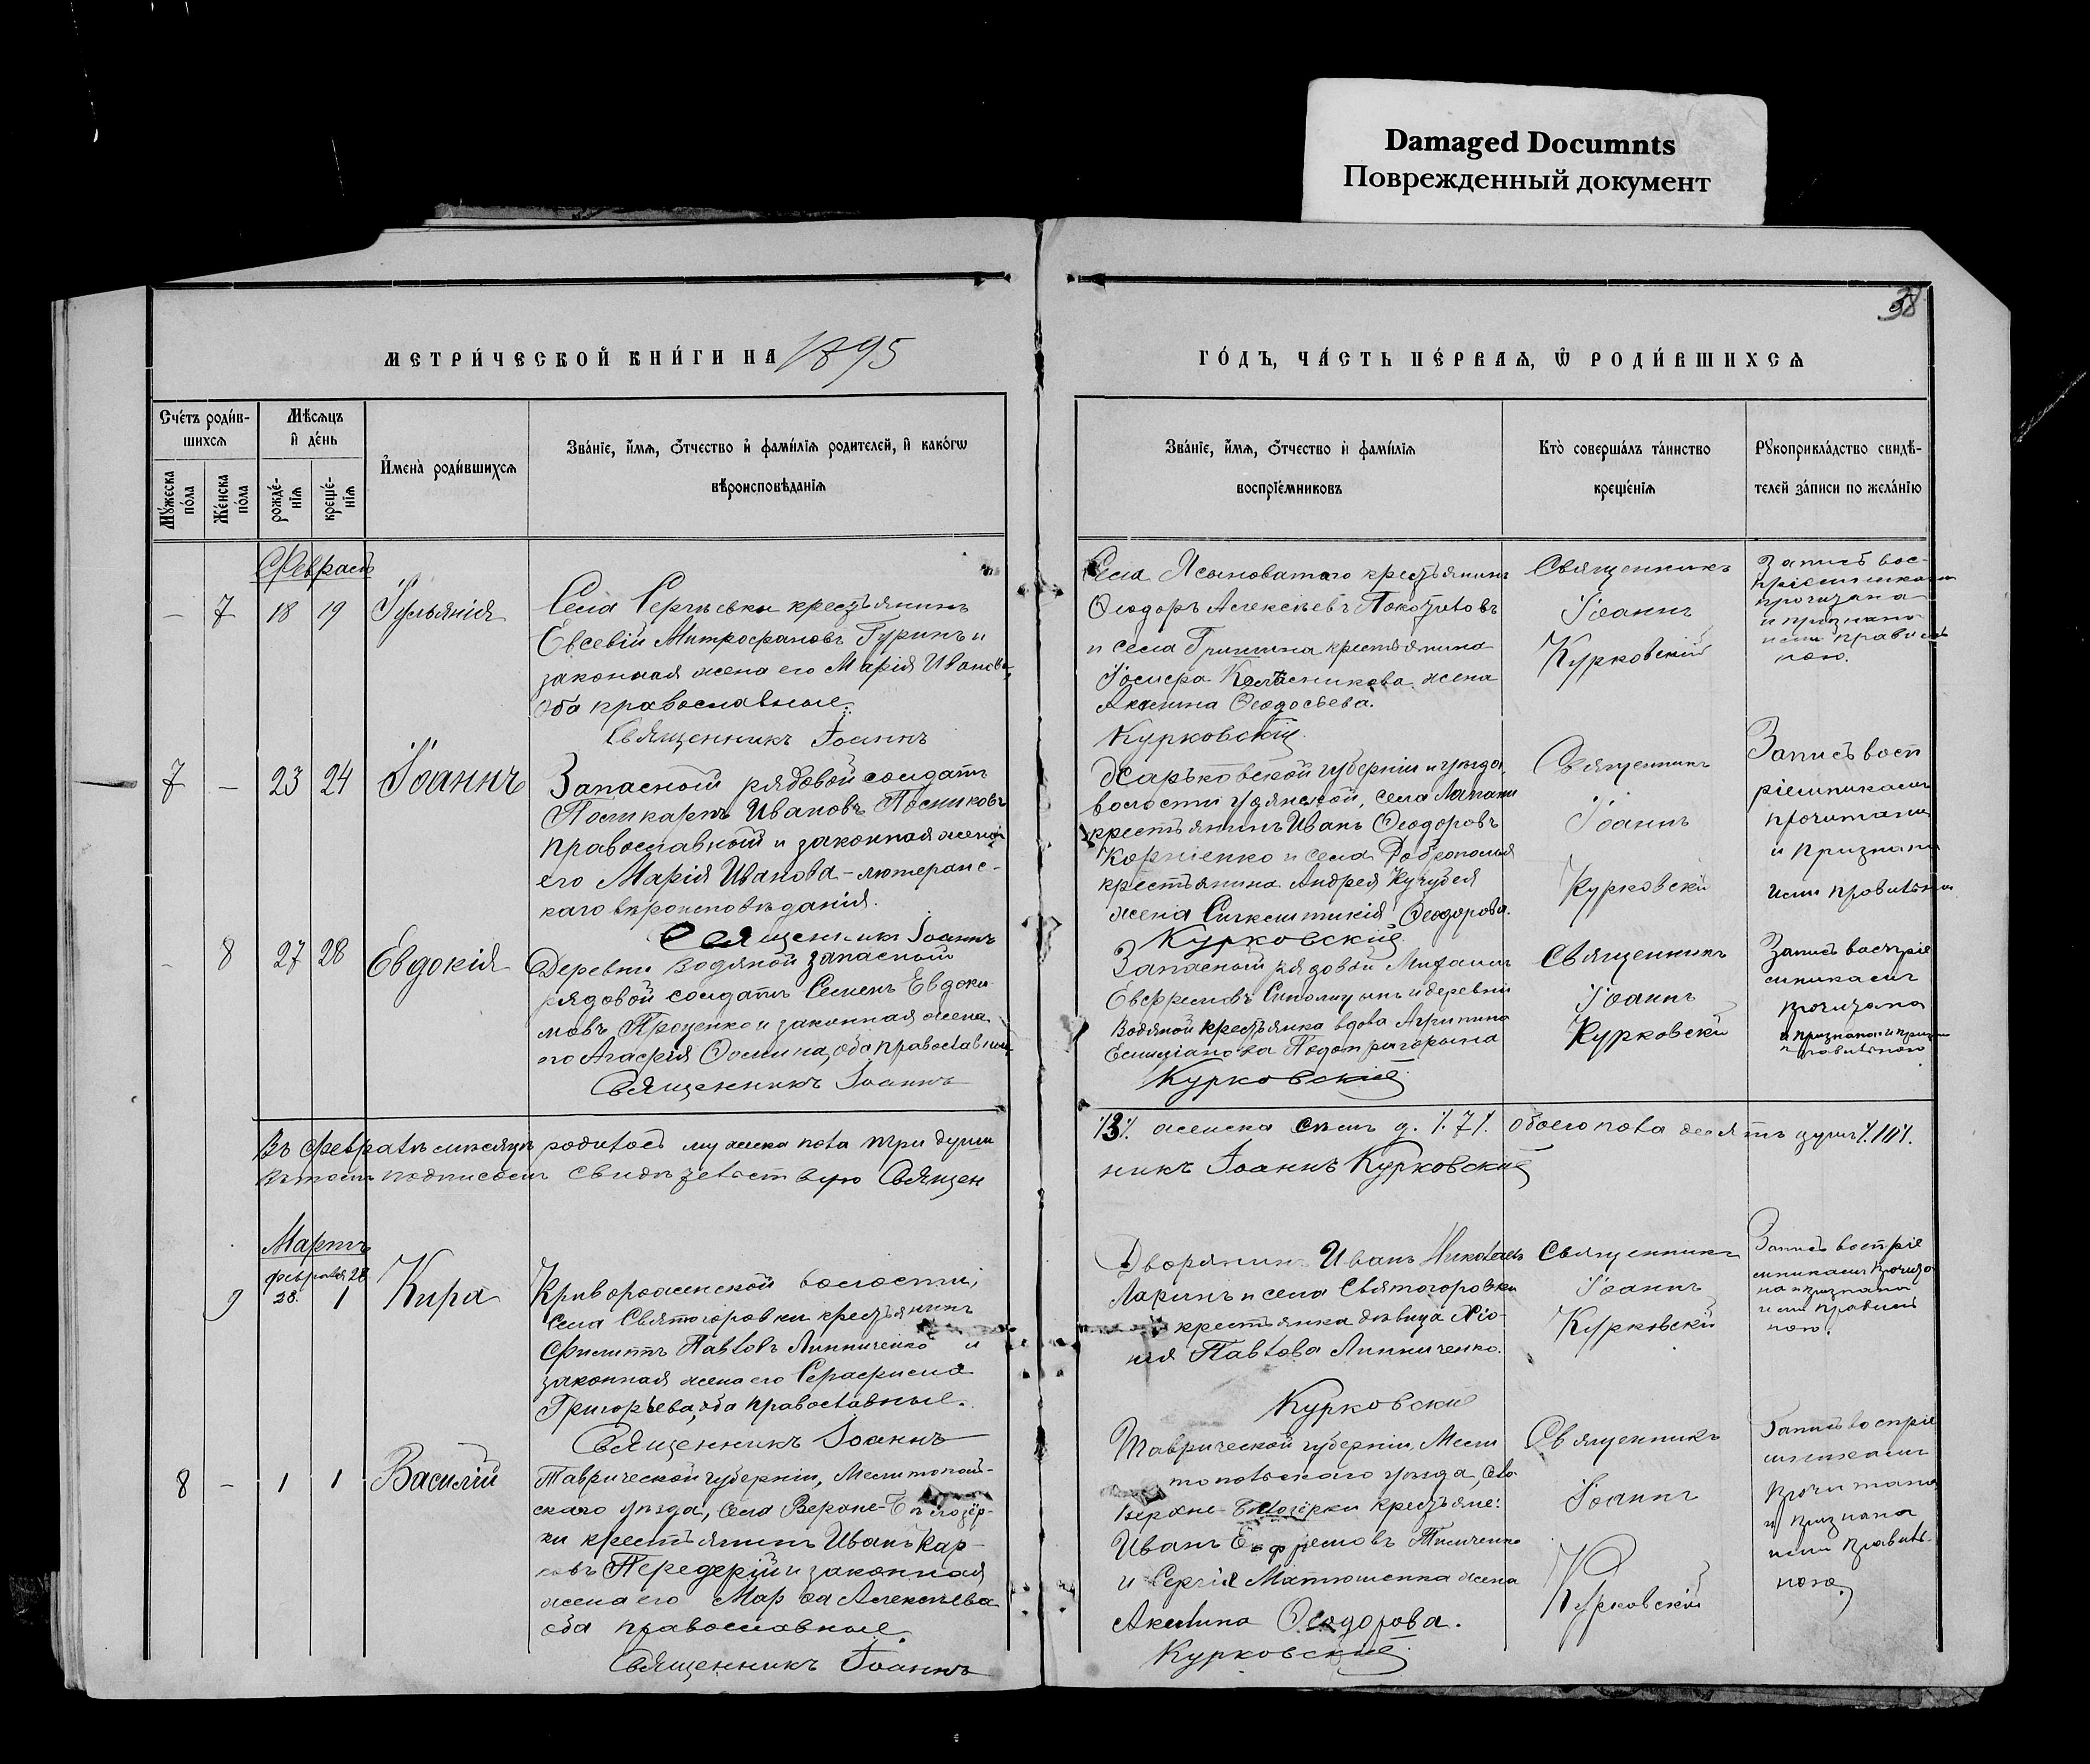 Damaged Documnts
Поврежденный документ
38
МЕТРИ́ЧЕСКОЙ КНИ́ГИ НА 1895
ГО́ДЪ, ЧА́СТЬ ПЕ́РВАѦ, Ѿ РОДИ́ВШИХСѦ
Сче́тъ роди́в-
шихсѧ
Мꙋ́жеска по́ла
Же́нска по́ла
Мѣ́сѧцъ
и҆ де́нь
рожде́-
нїѧ
креще́-
нїѧ
И҆мена̀ роди́вшихсѧ
Зва́нїе, и҆́мѧ, ѻ҆́тчество и҆ фами́лїѧ родителей, и҆ како́гѡ
вѣроисповѣ́данїѧ
Зва́нїе, и҆́мѧ, ѻ҆́тчество и҆ фами́лїѧ
воспрїе́мниковъ
Кто̀ соверша́лъ та́инство
креще́нїѧ
Рꙋкоприкла́дство свидѣ́-
телей за́писи по жела́нїю
Февраль
— 7 18 19 Іульянія
Села Сергѣевки крестьянинъ
Евсевій Митрофановъ Гуринъ и
законная жена его Марія Иванова,
оба православные.
Священникъ Іоаннъ
Села Ясыноватаго крестьянинъ
Ѳеодоръ Алексѣевъ
и села Гришина крестьянина
жена
Акилина Ѳеодосьева.
Курковскій.
Священникъ
Іоаннъ
Курковскій
Запись вос-
пріемниками
прочитана
и признана
ими правиль
ною.
7 — 23 24 Іоаннъ
Запасный рядовой солдатъ
Поликарпъ Ивановъ
православный и законная жена
его Марія Иванова - лютеранс-
каго вѣроисповѣданія.
Священникъ Іоаннъ
Харьковской губерніи и уѣзда,
волости Удянской, села
крестьянинъ Иванъ Ѳеодоровъ
Корніенко и села Доброполья
крестьянина Андрея Кучубея
жена Синклитикія Ѳеодорова.
Курковскій
Священникъ
Іоаннъ
Курковскій
Запись восп
ріемниками
прочитана
и признана
ими правильна
— 8 27 28 Евдокія
Деревни Водяной запасный
рядовой солдатъ Семенъ Евдоки
мовъ Проценко и законная жена
его Агафія Ѳомина, оба православные
Священникъ Іоаннъ
Запасный рядовой Михаилъ
Евфремовъ и деревни
Водяной крестьянка вдова Агрипина
Подопригорына
Курковскій
Священникъ
Іоаннъ
Курковскій
Запись воспріе
мниками
прочитана
Въ февралѣ мѣсяцѣ родилось мужеска пола три души
/.3/. женска семь д. /.7/. обоего пола десять душъ /.10/.
Въ томъ подписомъ свидѣтельствую Священ
никъ Іоаннъ Курковскій
Мартъ
февраля 28
9 28. 1 Кира
Криворожской волости,
села Святогоровки крестьянинъ
Филиппъ Павловъ Линниченко и
законная жена его Серафима
Григорьева, оба православные.
Священникъ Іоаннъ
Дворянинъ Иванъ Николаевъ
Ларинъ и села Святогоровки
крестьянка дѣвица Хіо-
нія Павлова Линниченко.
Курковскій
Священникъ
Іоаннъ
Курковскій
Запись воспріе
мниками прочита
на и признана
ими правиль
ною.
8 — 1 1 Василій
Таврической губерніи, Мелитополь-
скаго уѣзда, села Верхне-Бѣлозёр-
ки крестьянинъ Иванъ Кар-
повъ Передерій и законная
жена его Марѳа Алексѣева
оба православные.
Священникъ Іоаннъ
Таврической губерніи, Мели
топольскаго уѣзда, села
Верхне-Бѣлозёрки крестьяне:
Иванъ Ефремовъ Тимченко
и Сергія Матюшенка жена
Акилина Ѳеодорова.
Курковскій
Священникъ
Іоаннъ
Курковскій
Запись воспріе
мниками
прочитана
и признана
ими правиль-
ною.